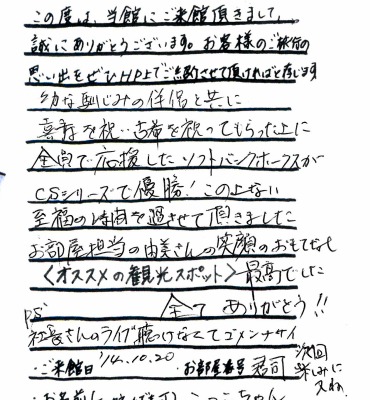 この度は、当館にご来館頂きまして、
誠にありがとうございます。お客様のご旅行の
思い出をぜひHP上でご紹介させて頂ければと存じます
幼な馴じみの伴侶と共に
喜寿を祝い古希を祝ってもらった上に
全員で応援したソフトバンクホークスが
CSシリーズで優勝!この上ない
至福の時間を過させて頂きました
お部屋担当の由美さんの笑顔のおもてなし
<オススメの観光スポット> 最高でした
全て ありがとう!!
PS
社長さんのライブ聴けなくてゴメンナサイ
次回楽しみに
・ご来館日 '14.10.20 ・お部屋番号 寿司